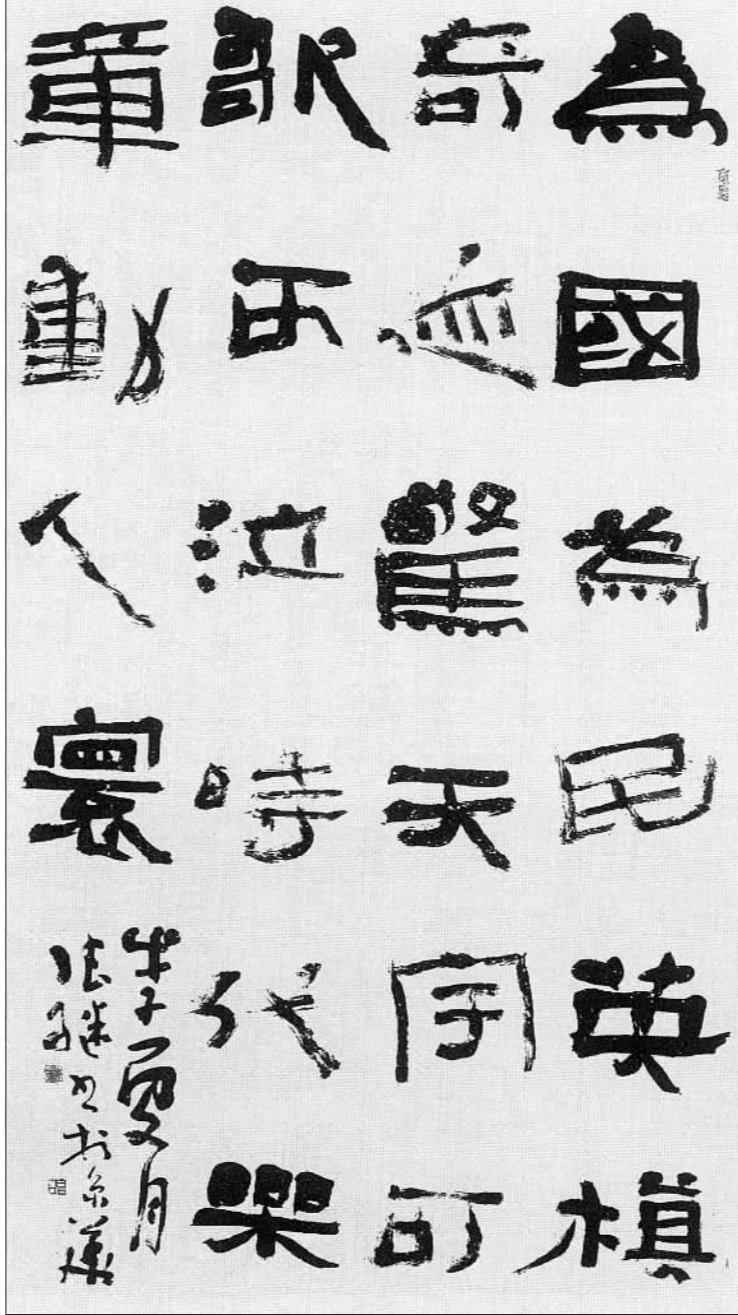 為國為民英模
奇迹驚天宇可
歌可泣時代樂
章動人寰
戊子夏月
张继书於京華